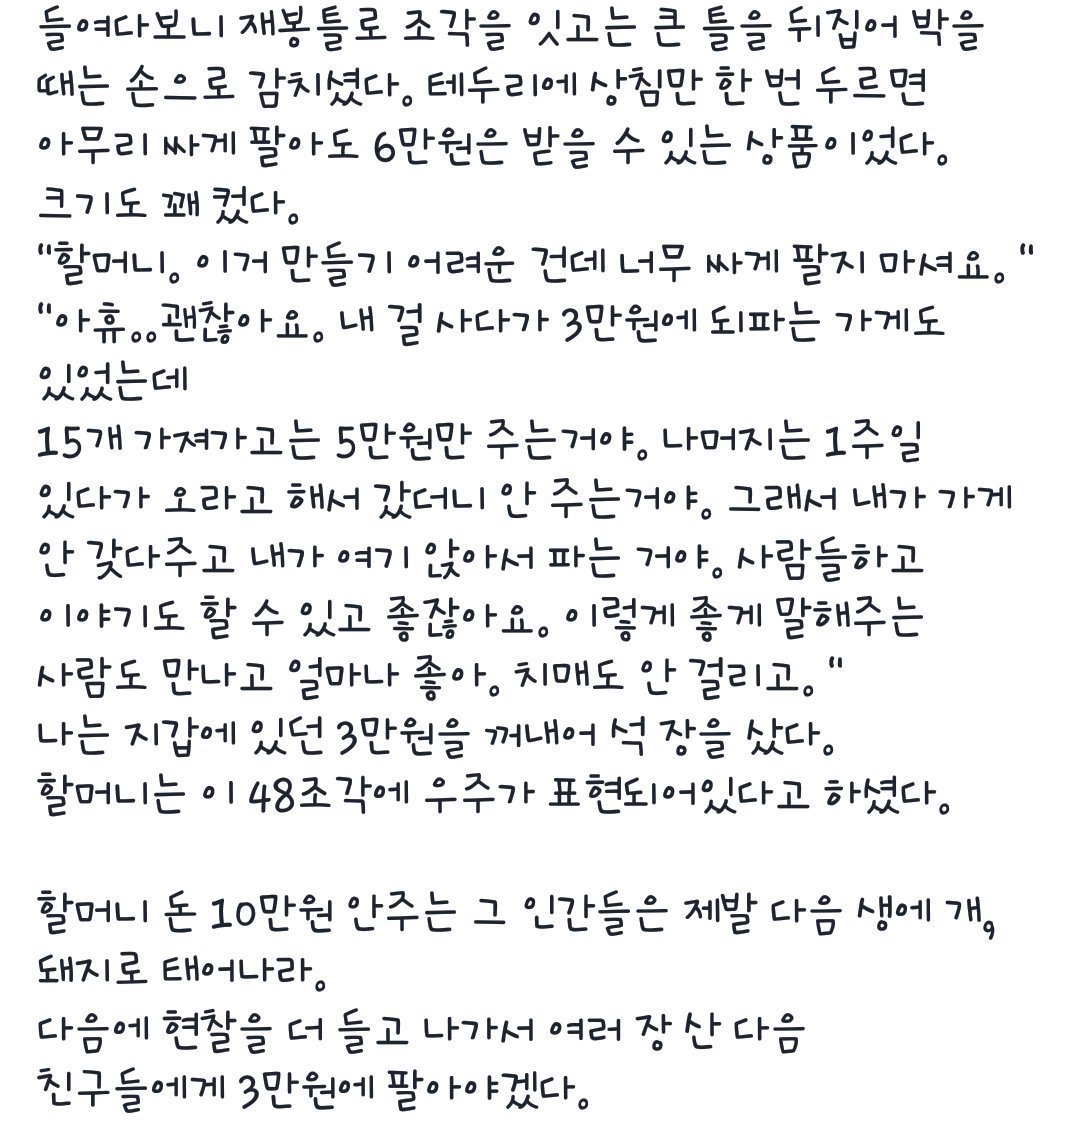 들여다보니 재봉틀로 조각을 잇고는 큰 틀을 뒤집어 박을
때는 손으로 감치셨다. 테두리에 상침만 한 번 두르면
아무리 싸게 팔아도 6만원은 받을 수 있는 상품이었다.
크기도 꽤 컸다.
"할머니. 이거 만들기 어려운 건데 너무 싸게 팔지 마셔요. "
"아휴..괜찮아요. 내 걸 사다가 3만원에 되파는 가게도
있었는데
15개 가져가고는 5만원만 주는거야. 나머지는 1주일
있다가 오라고 해서 갔더니 안 주는거야. 그래서 내가 가게
안 갖다주고 내가 여기 앉아서 파는 거야. 사람들하고
이야기도 할 수 있고 좋잖아요. 이렇게 좋게 말해주는
사람도 만나고 얼마나 좋아. 치매도 안 걸리고. "
나는 지갑에 있던 3만원을 꺼내어 석 장을 샀다.
할머니는 이 48조각에 우주가 표현되어있다고 하셨다.
할머니 돈 10만원 안주는 그 인간들은 제발 다음 생에 개,
돼지로 태어나라.
다음에 현찰을 더 들고 나가서 여러 장 산 다음
친구들에게 3만원에 팔아야겠다.